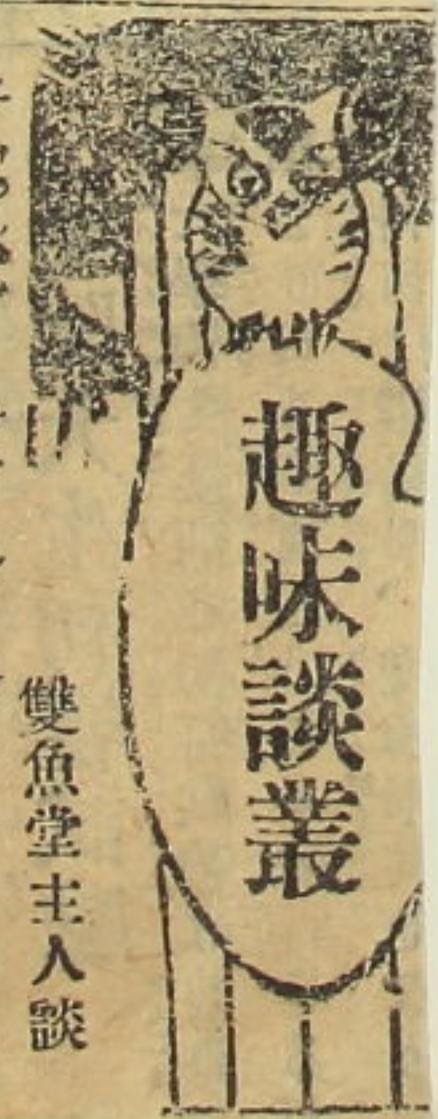 趣味談叢
雙魚堂主人談